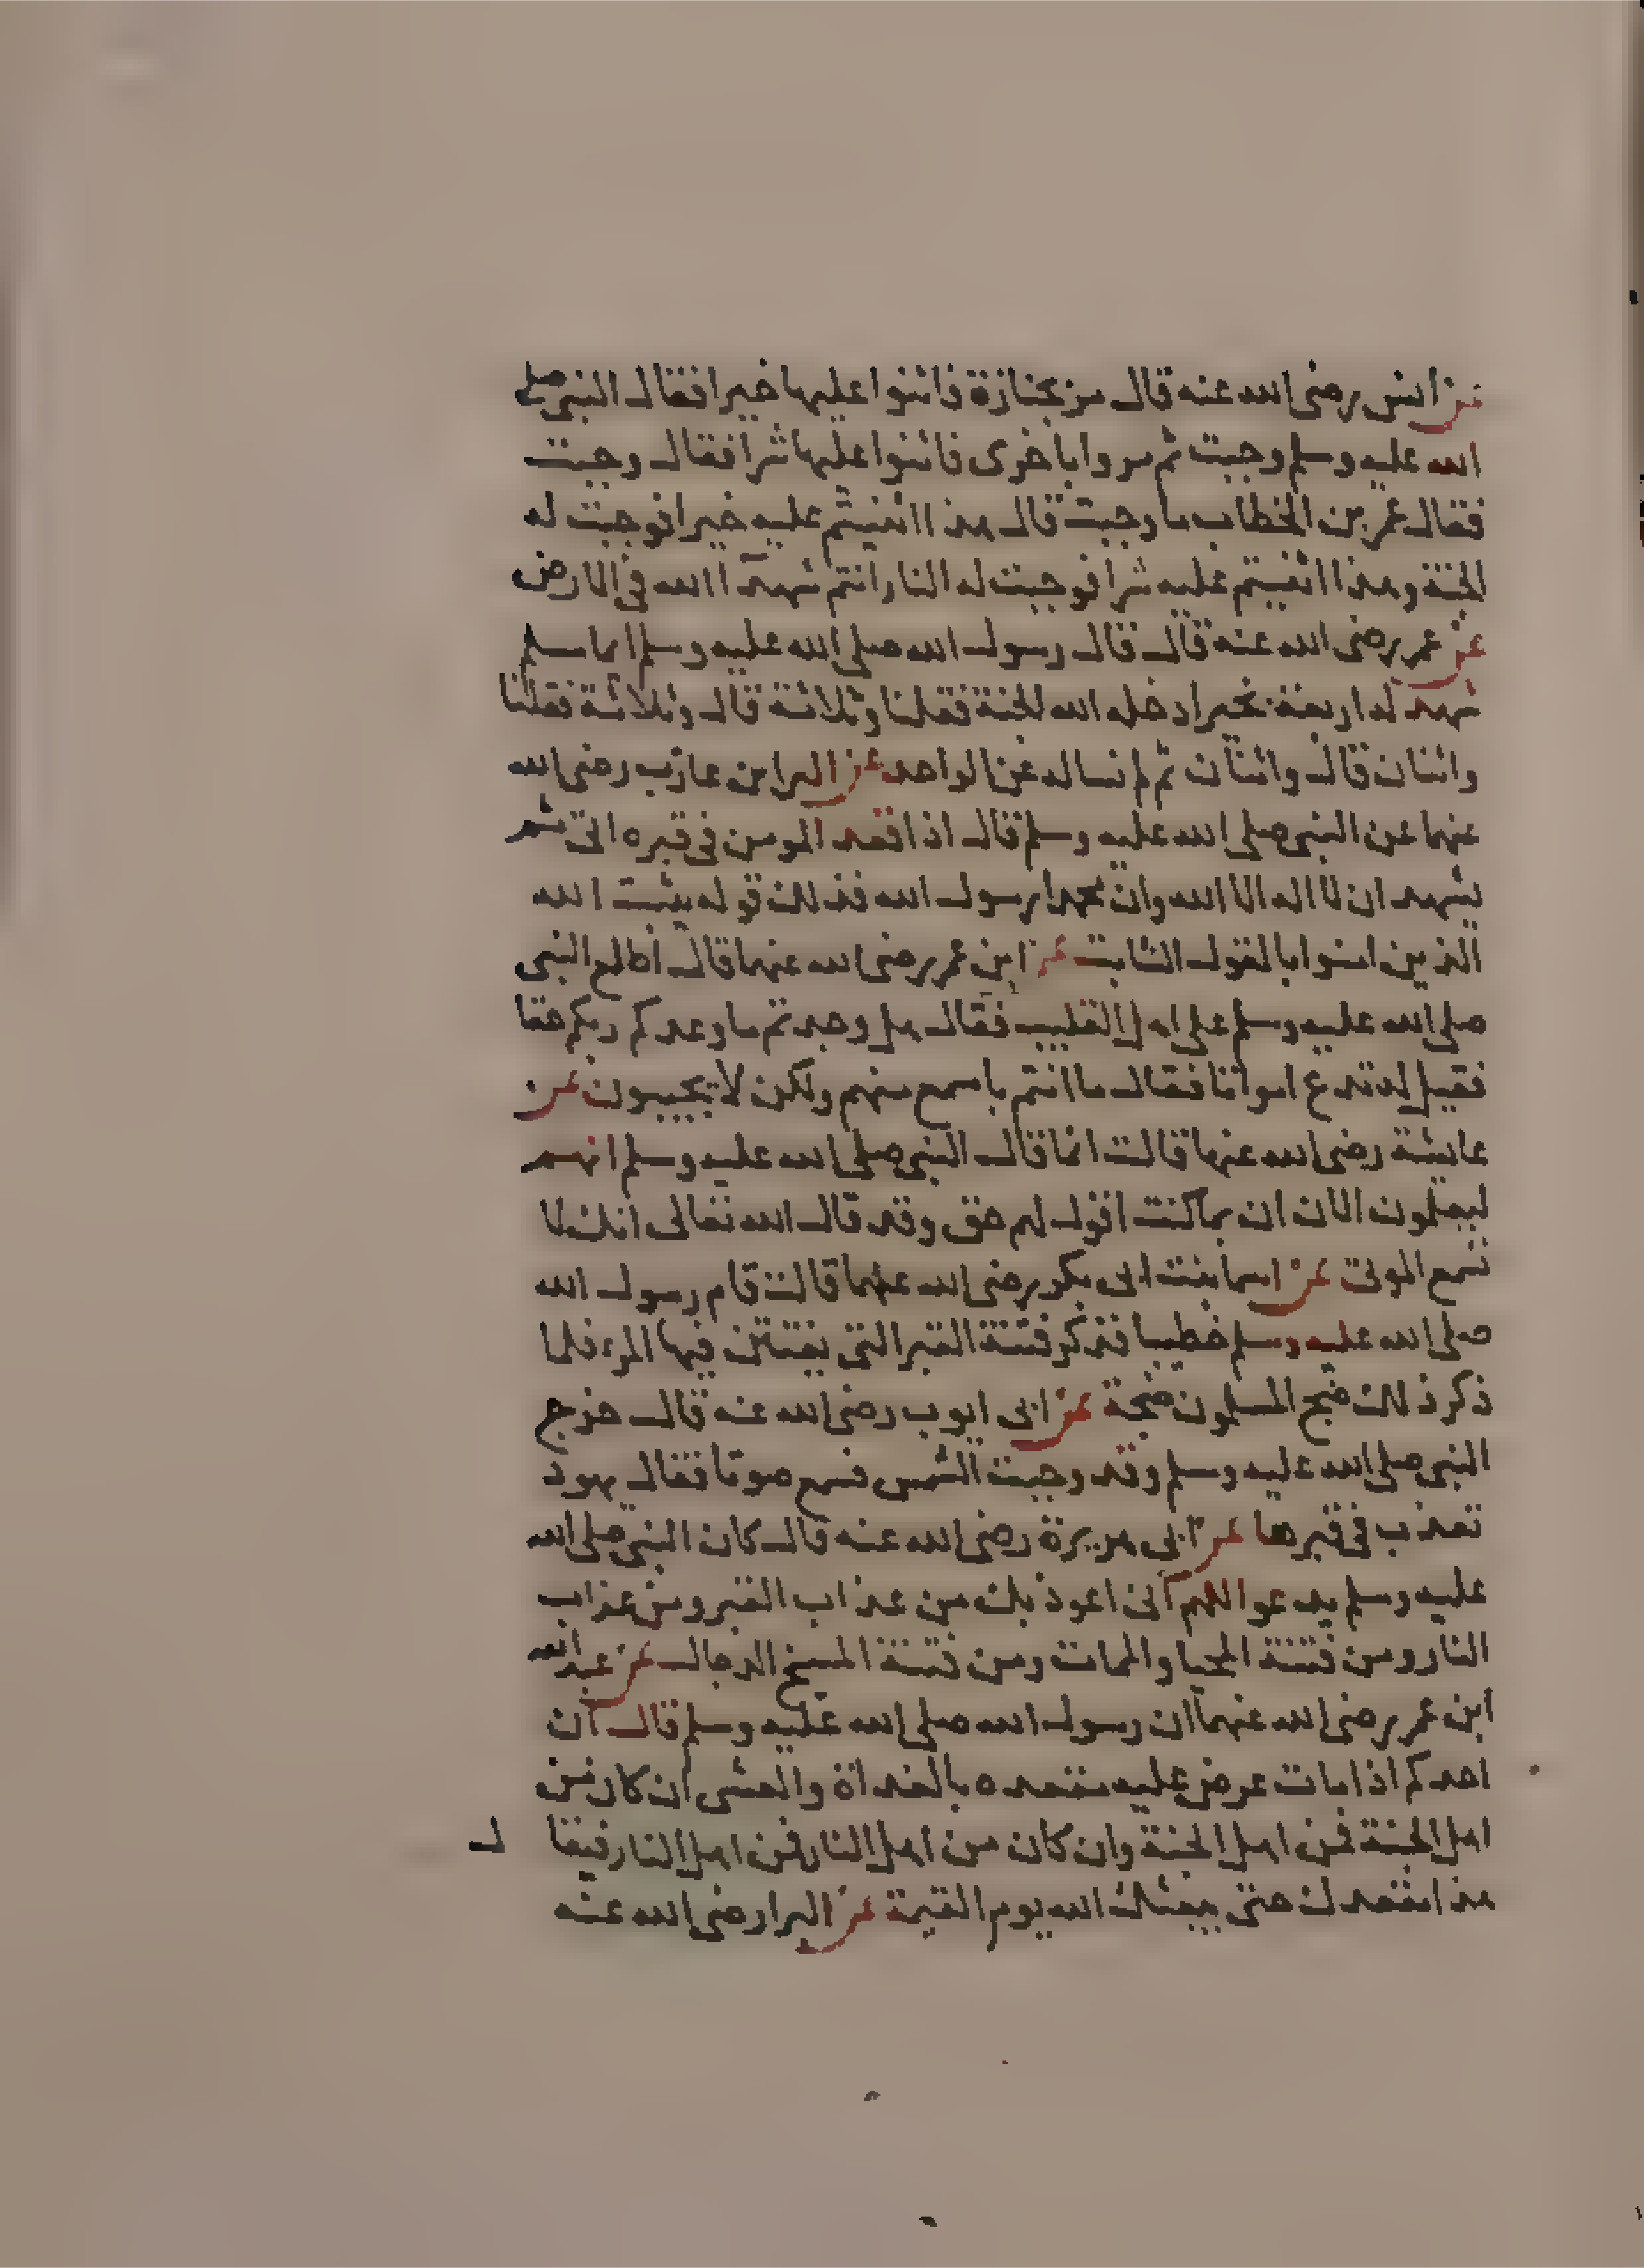 عن انس رضى الله عنه قال مر بجنازة فاثنوا عليها خيرا فقال النبى صلى
الله عليه وسلم وجبت ثم مروا باخرى فاثنوا عليها شرا فقال وجبت
فقال عمر بن الخطاب ما وجبت قال هذا اثنيتم عليه خيرا فوجبت له
الجنة وهذا اثنيتم عليه شرا فوجبت له النار انتم شهدآ الله فى الارض
عن عمر رضى الله عنه قال قال رسول الله صلى الله عليه وسلم ايما مسلم
شهد له اربعة بخير ادخله الله الجنة فقلنا وثلاثة قال وثلاثة فقلنا
واثنان قال واثنان ثم لم نساله عن الواحد عن البرا بن عازب رضى الله
عنهما عن النبى صلى الله عليه وسلم قال اذا اقعد المومن فى قبره اتى ثم
يشهد ان لا اله الا الله وان محمدا رسول الله فذلك قوله يثبت الله
الذين امنوا بالقول الثابت عن ابن عمر رضى الله عنهما قال اطلع النبى
صلى الله عليه وسلم على اهل القليب فقال هل وجدتم ما وعدكم ربكم حقا
فقيل له تدع امواتا فقال ما انتم باسمع منهم ولكن لا يجيبون عن
عايشة رضى الله عنها قالت انما قال النبى صلى الله عليه وسلم انهم
ليعلمون الان ان ما كنت اقول لهم حق وقد قال الله تعالى انك لا
تسمع الموتى عن اسما بنت ابى بكر رضى الله عنهما قالت قام رسول الله
صلى الله عليه وسلم خطيبا فذكر فتنة القبر التى يفتتن فيها المرء فلما
ذكر ذلك ضج المسلمون ضجة عن ابى ايوب رضى الله عنه قال خرج
النبى صلى الله عليه وسلم وقد وجبت الشمس فسمع صوتا فقال يهود
تعذب فى قبرها عن ابى هريرة رضى الله عنه قال كان النبى صلى الله
عليه وسلم يدعو اللهم انى اعوذ بك من عذاب القبر ومن عذاب
النار ومن فتنة المحيا والممات ومن فتنة المسيح الدجال عن عبد الله
ابن عمر رضى الله عنهما ان رسول الله صلى الله عليه وسلم قال ان
احدكم اذا مات عرض عليه مقعده بالغداة والعشى ان كان من
اهل الجنة فمن اهل الجنة وان كان من اهل النار فمن اهل النار فيقال
هذا مقعدك حتى يبعثك الله يوم القيمة عن البرا رضى الله عنه